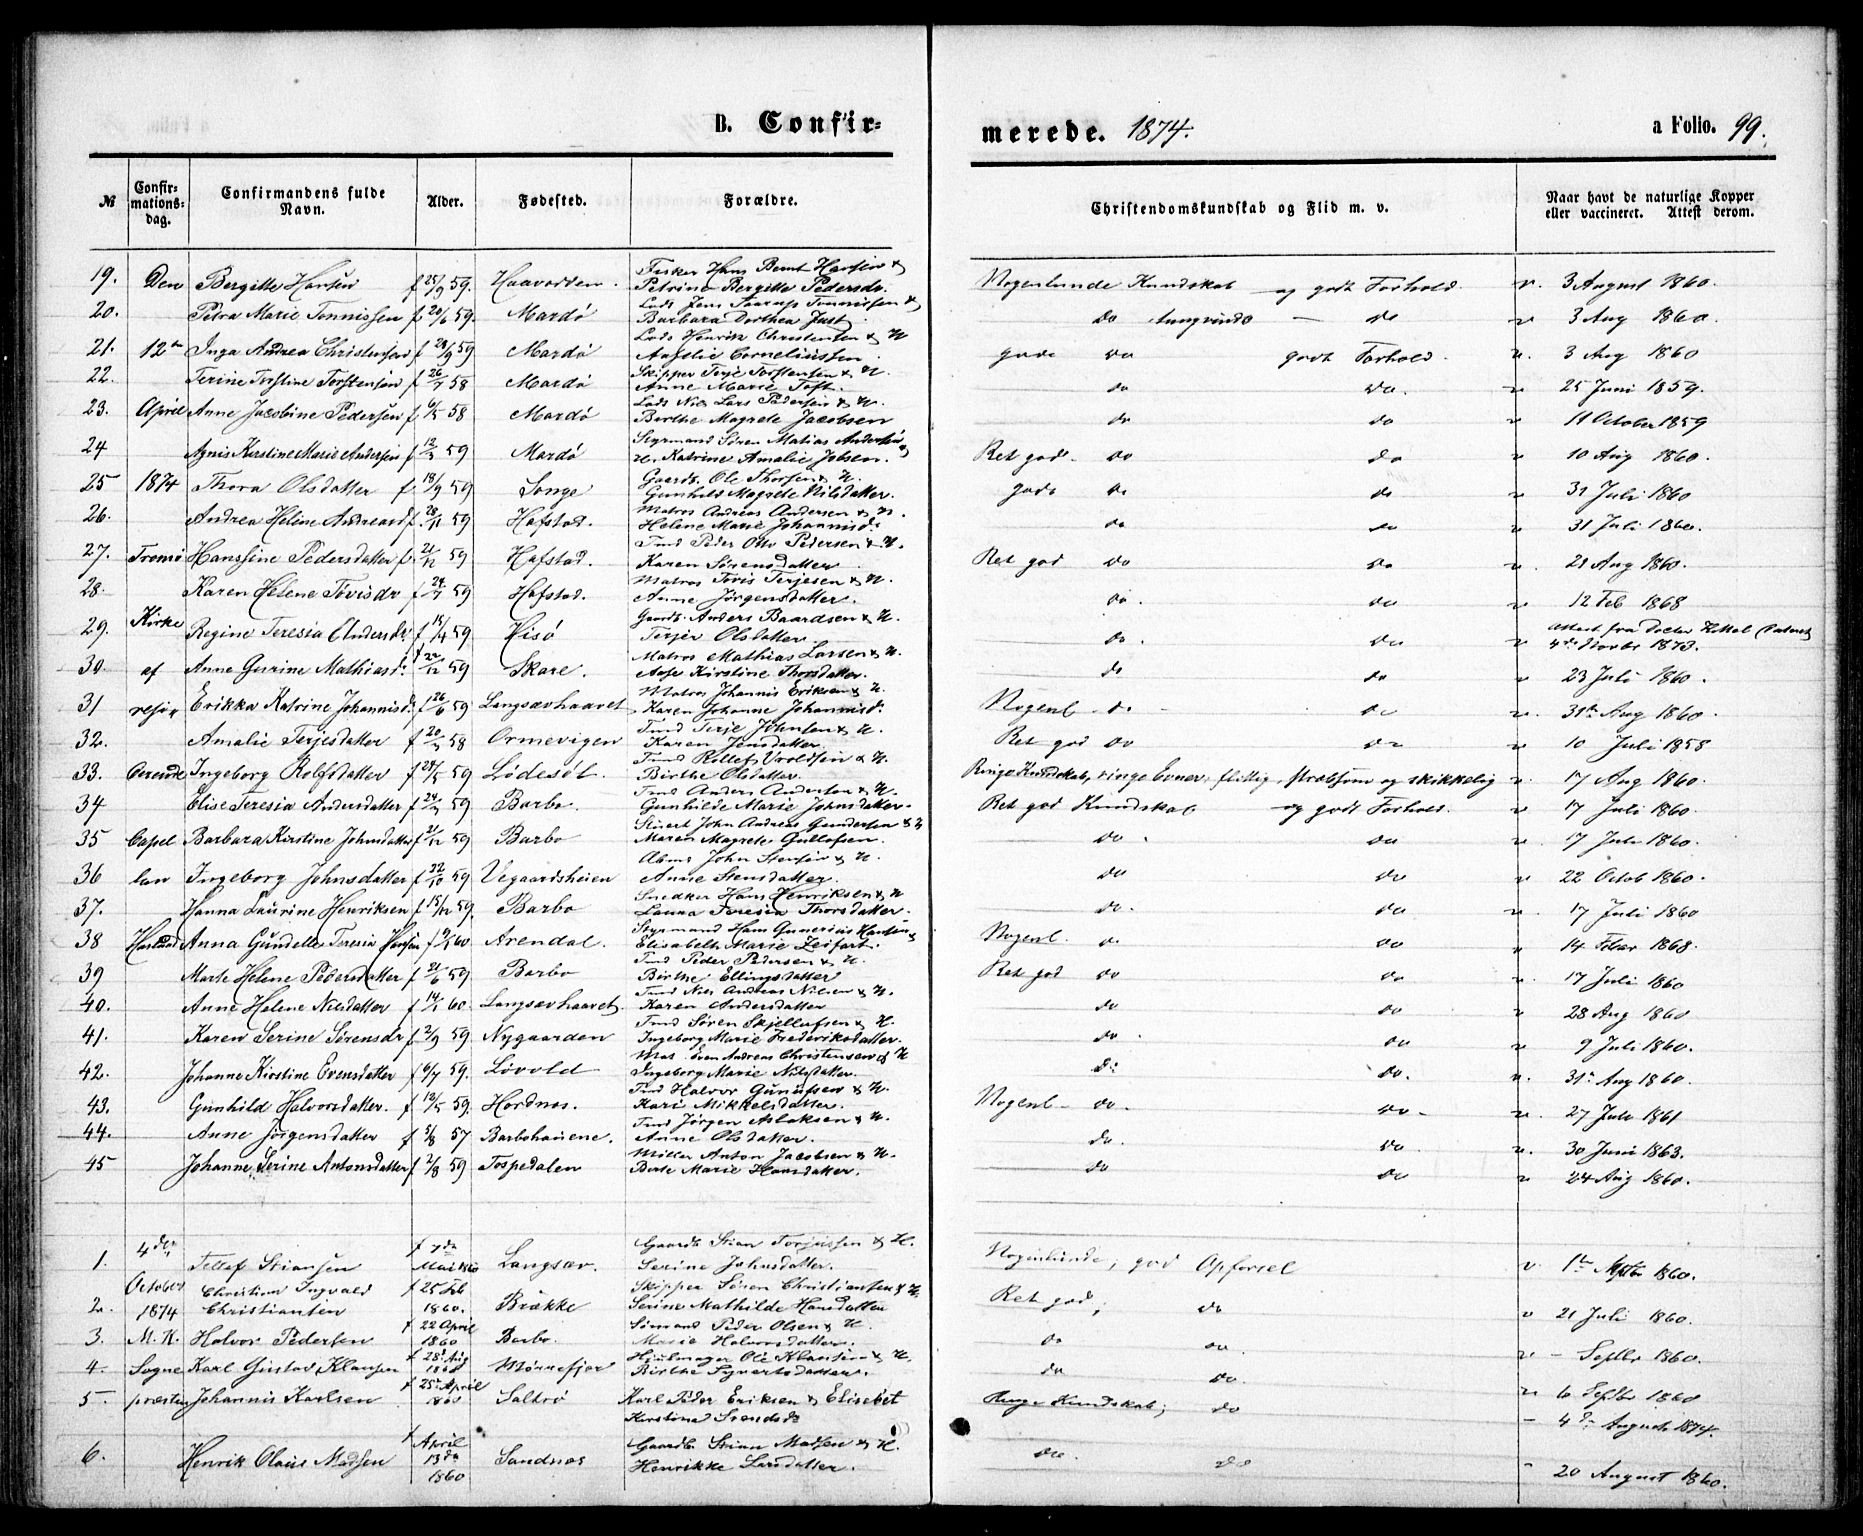 B. Confir-
merede. 1874.
a Folio. 99.
№ Confir-mations-dag. Confirmandens fulde Navn. Alder. Fødested. Forældre. Christendomskundskab og Flid m. v. Naar havt de naturlige Kopper eller vaccineret. Attest derom.
19. Den Bergitte Hansen f 25/9 59. Haavodden. Fisker Hans Bernt Hansen & Petrine Bergitte Pedersdr. Nogenlunde Kundskab og godt Forhold. v. 3 August 1860.
20. Petra Marie Tønnissen f 20/6 59. Mardø Lods Jens Taarup Tønnissen & Barbara Dorthea Just. do do v 3 Aug 1860.
21. 12te Inga Andrea Christensen f 20/9 59 Mardø Lods Henrik Christensen & H Aaselie Corneliussen. gode do godt Forhold. v. 3 Aug 1860
22. Terine Torstine Torstensen f 26/7 58 Mardø Skipper Terje Torstensen & H. Anne Marie Toft. do do. v 25 Juni 1859.
23. April Anne Jacobine Pedersen f 6/5 58 Mardø Lods Nils Lars Pedersen & H. Berthe Magrete Jacobsen do do v 11 October 1859
24 Agnis Kerstine Marie Andersen f 12/3 59 Mardø Styrmand Søren Matias Andersen & H. Katrine Amalie Jobsen. Ret god. do do v 10 Aug 1860.
25 1874 Thora Olsdatter f. 18/9 59 Songe Gaardb. Ole Thorsen & H. Gunhild Magrete Nilsdatter. gode do do v 31 Juli 1860
26. Andrea Heline Andreasd f. 28/11 59 Hafstad. Matros Andreas Andersen & H. Helene Marie Johannisd. do do v 31 Juli 1860.
27. Tromø Hanssine Pedersdatter f. 21/12 59 Hafstad. Tmd Peder Otto Pedersen & H. Karen Sørensdatter Ret god do do v. 21 Aug 1860.
28. Karen Helene Tovisdr f 24/7 59 Hafstad. Matros Tovis Terjesen & H. Anne Jørgensdatter. do. do v 12 Feb 1868
29. Kirke Regine Teresia Andersdr f 15/4 59 Hisø Gaardb. Anders Baardsen & H. Terjer Olsdatter. do. do v Attest fra Doctor Kittel 4de Novbr 1873.
30 af Anne Gurine Mathiasd. f 22/12 59 Skare. Matros Mathias Larsen & H. Aase Kirstine Thorsdatter. do do v 23 Juli 1860.
31 resi= Erikka Katrine Johannisd. f 26/6 59 Langsævhaavet Matros Johannis Eriksen & H. Karen Johanne Johannisd. Nogenl do do v. 31te Aug 1860.
32. Amalie Terjesdatter f 20/3 58 Ormevigen Tmd Terje Johnsen & H. Karen Jensdatter. Ret god do do v. 10 Juli 1858
33. Ingeborg Rolfsdatter f 28/5 59 Lødesøl. Tmd Rollef Vroldsen & H. Birthe Olsdatter. Ringe Kundskab, ringe Evner, flittig, stræbsom og skikkelig v. 17 Aug 1860.
34 Elise Teresia Andersdatter f 24/3 59 Barbo. Tmd Anders Andersen & H. Gunhilde Marie Johnsdatter. Ret god Kundskab og godt Forhold. v 17 Juli 1860.
35 Capel Barbara Kirstine Johnsdatter f 2/12 59 Barbo Stuert John Andreas Gundersen & H Maren Magrete Gullofsen. do. do v 17 Juli 1860.
36 lan Ingeborg Johnsdatter f 22/10 59 Vegaardsheien John Stensen & H. Anne Stensdatter. do do v 22 Octob 1860.
37. Hanna Laurine Henriksen f 15/12 59. Barbo Snedker Hans Henriksen & H Launa Teresia Thorsdatter. do. do v. 17 Juli 1860
38 Anna Gundelle Teresia Hansen f 9/1 60 Arendal. Styrmand Hans Gunerius Hansen & Elisabeth Marie Zeifart. Nogenl. do. do v 14 Febr 1868.
39 Marte Helene Pedersdatter f 21/6 59 Barbo Tmd Peder Pedersen & H. Birthe Ellingsdatter Ret god do do v 17 Juli 1860
40. Anne Helene Nilsdatter f 14/1 60. Langsævhaavet. Tmd Nils Andreas Nilsen & H. Karen Andersdatter do do v 28 Aug 1860
41. Karen Serine Sørensdr f 2/9 59. Nygaarden Tmd Søren Skjellofsen & H. Ingeborg Marie Frederiksdatter. do. do v 9 Juli 1860.
42. Johanne Kirstine Evensdatter f 6/7 59. Løvold Mat. Even Andreas Christensen & H Ingeborg Marie Nilsdatter. do. do. v. 31te Aug 1860.
43. Gunhild Halvorsdatter. f 12/5 59. Hordnes. Tmd Halvor Gunufsen & H. Kari Mikkelsdatter. Nogenl - do. do - v. 27 Juli 1861
44. Anne Jørgensdatter f 5/8 57 Barbohauene. Tmd Jørgen Aslaksen & H. Anne Olsdatter. do. do v. 30 Juni 1863.
45 Johanne Serine Antonsdatter f 2/8 59 Tospedalen Møller Anton Jacobsen & H. Berte Marie Hansdatter. do do v 24 Aug 1860.
1. 4de Tellef Stiansen f 7de Mai 1860 Langsæv. Gaardb Stian Torjussen & H. Serine Johnsdatter. Nogenlunde, god Opførsel v 1te Septbr 1860.
2. October 1874 Christian Ingvald Christiansen f 25 Feb 1860. Brække Skipper Søren Christiansen & H. Serine Mathilde Hansdatter Ret god, do v 21 Juli 1860.
3. M. K. Halvor Pedersen f 22 April 1860 Barbo. Sømand Peder Olsen & H. Marie Halvorsdatter. do do. v - Septbr 1860.
4. Sogne Karl Gustav Klausen f 28de Aug 1860 Mønnefjør Hjulmager Ole Klausen & H, Birthe Syvertsdatter. do do. v 6 Septbr 1860
5. præsten Johannis Karlsen f 25de April 1860 Saltrø Karl Peder Eriksen & Elisebet Kirstine Svendsd. Ringe Kundskab; do - 4de August 1874.
6. Henrik Olaus Madsen f April 13de 1860 Sandnæs Gaardb. Stian Madsen & H. Henrikke Larsdatter. do. do - 20 August 1860.